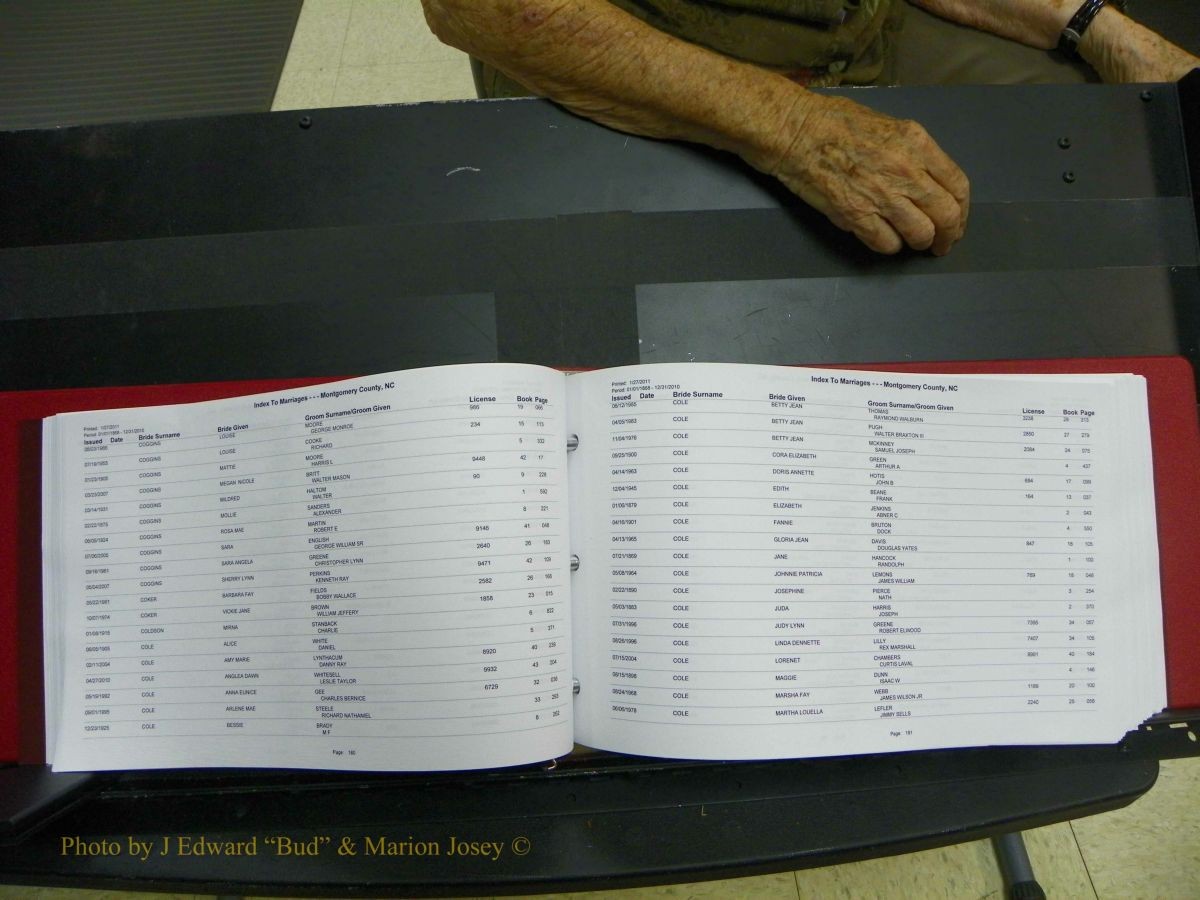 Index To Marriages - - - Montgomery County, NC
Printed: 1/27/2011
Period: 01/01/1868 - 12/31/2010
Issued Date Bride Surname Bride Given Groom Surname/Groom Given License Book Page
COGGINS LOUISE MOORE 986 19 066
GEORGE MONROE
COGGINS LOUISE COOKE 234 15 113
RICHARD
COGGINS MATTIE MOORE 5 332
HARRIS L
COGGINS MEGAN NICOLE BRITT 9448 42 17
WALTER MASON
COGGINS MILDRED HALTOM 90 9 228
WALTER
COGGINS MOLLIE SANDERS 1 592
ALEXANDER
COGGINS ROSA MAE MARTIN 8 221
ROBERT E
COGGINS SARA ENGLISH 9146 41 048
GEORGE WILLIAM SR
COGGINS SARA ANGELA GREENE 2640 26 163
CHRISTOPHER LYNN
COGGINS SHERRY LYNN PERKINS 9471 42 109
KENNETH RAY
COKER BARBARA FAY FIELDS 2582 26 166
BOBBY WALLACE
COKER VICKIE JANE BROWN 1858 23 015
WILLIAM JEFFERY
COLDSON MIRNA STANBACK 6 822
CHARLIE
COLE ALICE WHITE 5 371
DANIEL
02/11/2004 COLE AMY MARIE LYNTHACUM 8920 40 239
DANNY RAY
04/27/2010 COLE ANGLEA DAWN WHITESELL 9932 43 204
LESLIE TAYLOR
05/19/1992 COLE ANNA EUNICE GEE 6729 32 036
CHARLES BERNICE
09/01/1995 COLE ARLENE MAE STEELE 33 253
RICHARD NATHANIEL
12/23/1925 COLE BESSIE BRADY 8 262
M F
Page: 160
Index To Marriages - - - Montgomery County, NC
Printed: 1/27/2011
Period: 01/01/1868 - 12/31/2010
Issued Date Bride Surname Bride Given Groom Surname/Groom Given License Book Page
06/12/1985 COLE BETTY JEAN THOMAS 3238 28 313
RAYMOND WALBURN
04/09/1983 COLE BETTY JEAN PUGH 2850 27 279
WALTER BRAXTON III
11/04/1976 COLE BETTY JEAN MCKINNEY 2084 24 075
SAMUEL JOSEPH
09/25/1900 COLE CORA ELIZABETH GREEN 4 437
ARTHUR A
04/14/1963 COLE DORIS ANNETTE HOTIS 684 17 099
JOHN B
12/04/1945 COLE EDITH BEANE 164 13 037
FRANK
01/06/1879 COLE ELIZABETH JENKINS 2 043
ABNER C
04/16/1901 COLE FANNIE BRUTON 4 550
DOCK
04/13/1965 COLE GLORIA JEAN DAVIS 847 18 105
DOUGLAS YATES
07/21/1869 COLE JANE HANCOCK 1 100
RANDOLPH
05/08/1964 COLE JOHNNIE PATRICIA LEMONS 769 18 046
JAMES WILLIAM
02/22/1890 COLE JOSEPHINE PIERCE 3 254
NATH
05/03/1883 COLE JUDA HARRIS 2 370
JOSEPH
07/31/1996 COLE JUDY LYNN GREENE 7395 34 097
ROBERT ELWOOD
08/26/1996 COLE LINDA DENNETTE LILLY 7407 34 105
REX MARSHALL
07/15/2004 COLE LORENET CHAMBERS 40 184
CURTIS LAVAL
08/15/1898 COLE MAGGIE DUNN 4 146
ISAAC W
08/24/1968 COLE MARSHA FAY WEBB 1189 20 100
JAMES WILSON JR
06/06/1978 COLE MARTHA LOUELLA LEFLER 2240 25 056
JIMMY SELLS
Page: 161
Photo by J Edward “Bud” & Marion Josey ©